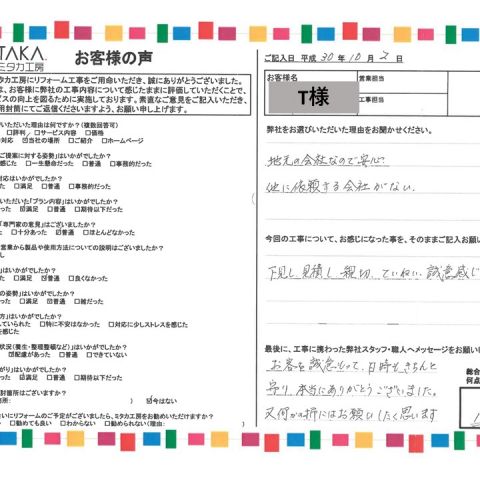 TAKA
ミタカ工房
お客様の声
タカ工房にリフォーム工事をご用命いただき、誠にありがとうございました。
は、お客様に弊社の工事内容について感じたままに評価していただくことで、
ビスの向上を図るために実施しております。素直なご意見をご記入いただき、
用封筒にてご返信くださいますよう、お願い申し上げます。
いただいた理由は何ですか?(複数回答可)
□評判 □サービス内容 □価格
☑対応 ☑当社の場所 □ご紹介 □ホームページ
ご提案に対する姿勢」はいかがでしたか?
感じた □一生懸命だった □普通 □事務的だった
対応はいかがでしたか?
た □満足 □普通 □事務的だった
いただいた「プラン内容」はいかがでしたか?
った ☑満足 □普通 □期待以下だった
「専門家の意見」はございましたか?
た □十分あった ☑普通 □ほとんどなかった
営業から製品や使用方法についての説明はございましたか?
」はいかがでしたか?
った □満足 ☑普通 □良くなかった
の姿勢」はいかがでしたか?
った □丁寧 ☑普通 □雑だった
方」はいかがでしたか?
していられた □特に不安はなかった □対応に少しストレスを感じた
を感じた
状況(養生・整理整頓など)」はいかがでしたか?
☑配慮があった □普通 □できていない
がり」はいかがでしたか?
った ☑満足 □普通 □期待以下だった
討箇所はございますか?
箇所: ) ☑今はない
会いにリフォームのご予定がございましたら、ミタカ工房をお勧めいただけますか?
勧めても良い □わからない □勧められない(理由: )
ご記入日 平成 30 年 10 月 2 日
お客様名
営業担当
T様
工事担当
弊社をお選びいただいた理由をお聞かせください。
地元の会社なので安心
他に依頼する会社がない。
今回の工事について、お感じになった事を、そのままご記入お願い
下見し、見積し、親切、ていねい、誠意感じ
最後に、工事に携わった弊社スタッフ・職人へメッセージをお願い
お客を誠意もって、日時もきちんと
守り、本当にありがとうございました。
又何かの折にはお願いしたく思います
総合
何点